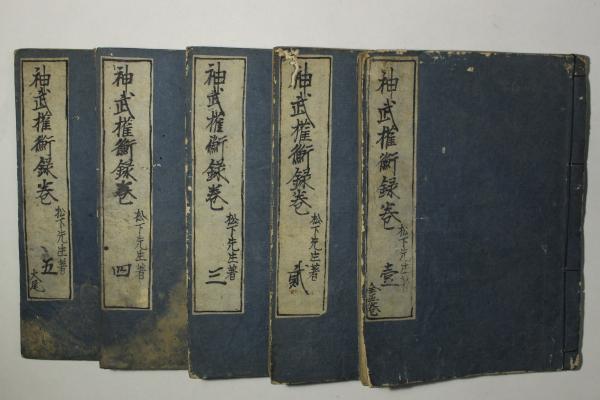 神武權衡録巻
松下先生著
壹
全五巻
神武權衡録巻
松下先生著
貳
神武權衡録巻
松下先生著
三
神武權衡録巻
松下先生著
四
神武權衡録巻
松下先生著
五
大尾